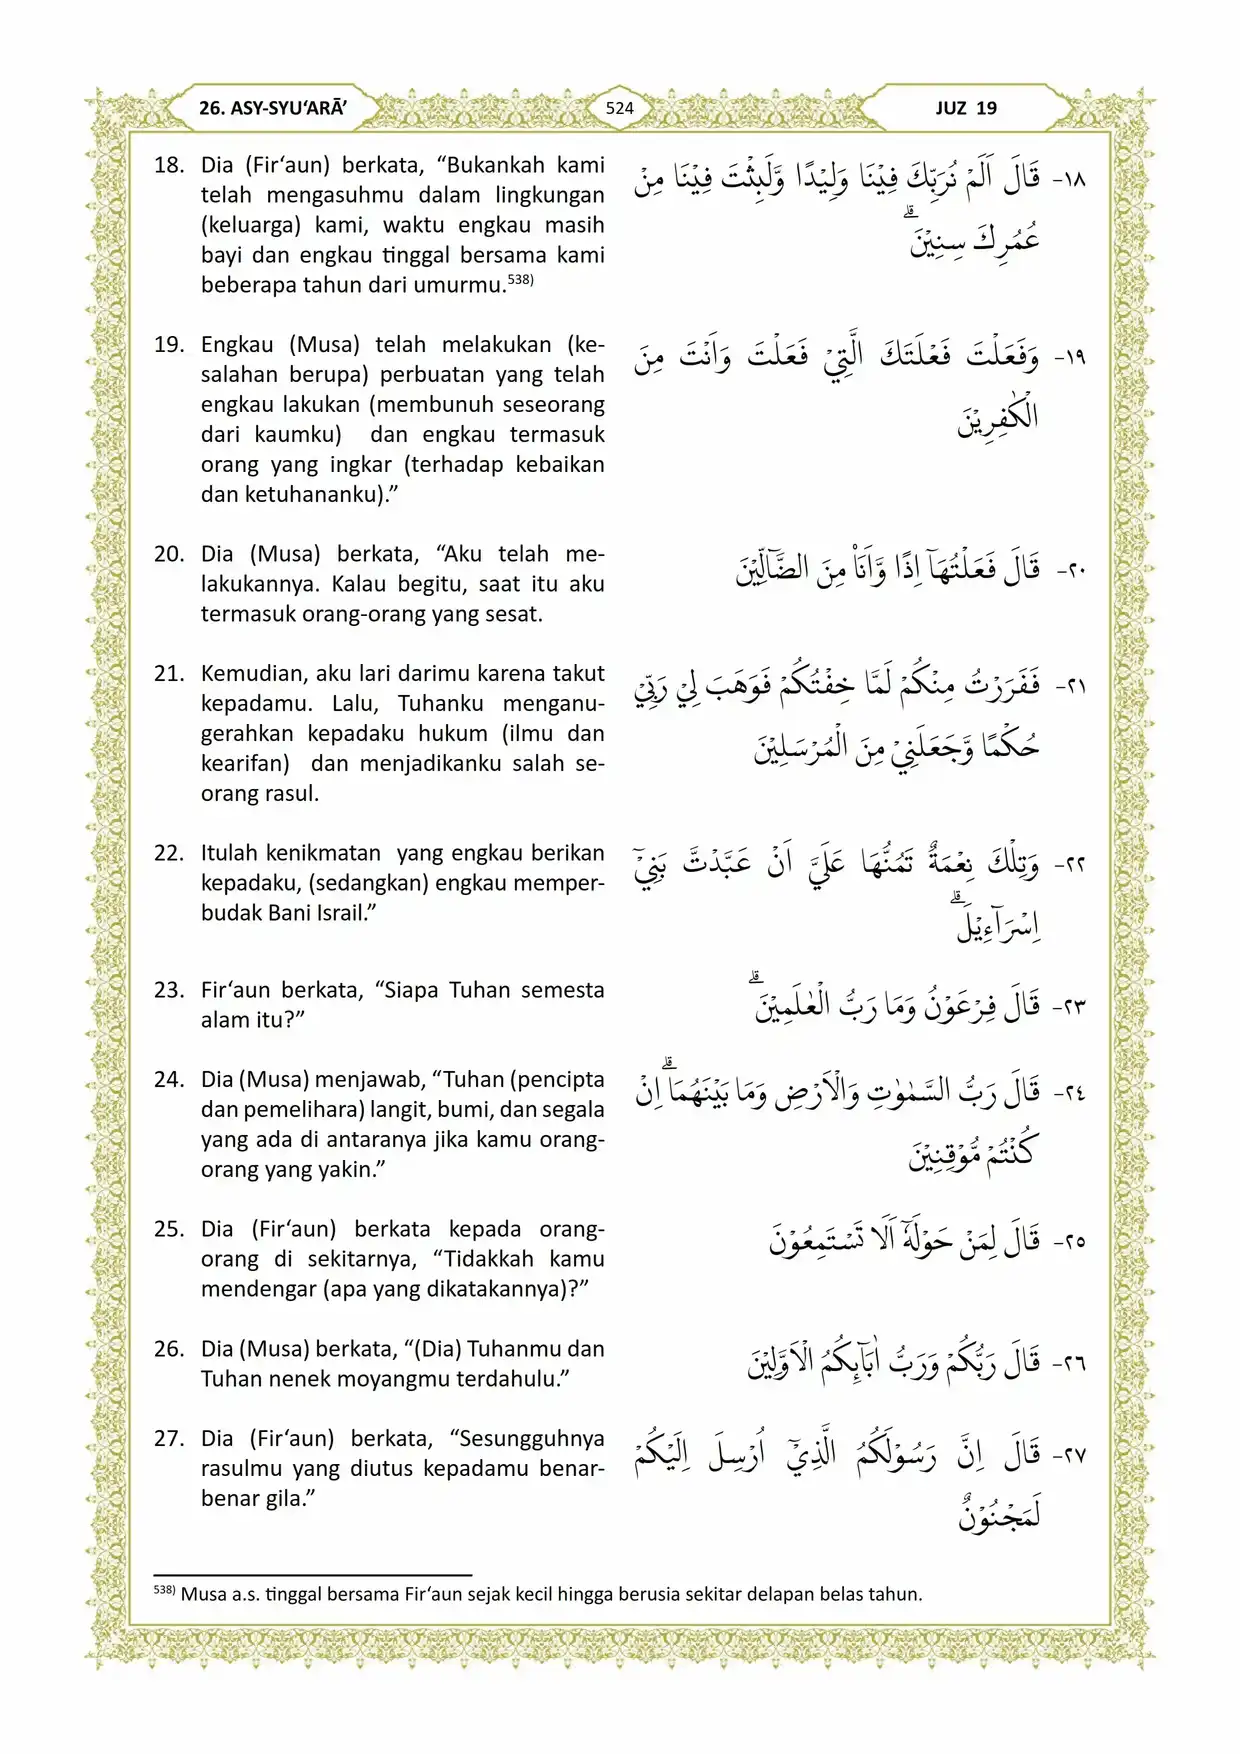 26. ASY-SYU‘ARĀ’
524
JUZ 19
18. Dia (Fir‘aun) berkata, “Bukankah kami
telah mengasuhmu dalam lingkungan
(keluarga) kami, waktu engkau masih
bayi dan engkau tinggal bersama kami
beberapa tahun dari umurmu.538)
١٨- قَالَ اَلَمْ نُرَبِّكَ فِيْنَا وَلِيْدًا وَّلَبِثْتَ فِيْنَا مِنْ
عُمُرِكَ سِنِيْنَ ۗ
19. Engkau (Musa) telah melakukan (ke-
salahan berupa) perbuatan yang telah
engkau lakukan (membunuh seseorang
dari kaumku) dan engkau termasuk
orang yang ingkar (terhadap kebaikan
dan ketuhananku).”
١٩- وَفَعَلْتَ فَعْلَتَكَ الَّتِيْ فَعَلْتَ وَاَنْتَ مِنَ
الْكٰفِرِيْنَ
20. Dia (Musa) berkata, “Aku telah me-
lakukannya. Kalau begitu, saat itu aku
termasuk orang-orang yang sesat.
٢٠- قَالَ فَعَلْتُهَآ اِذًا وَّاَنَا۠ مِنَ الضَّاۤلِّيْنَ
21. Kemudian, aku lari darimu karena takut
kepadamu. Lalu, Tuhanku menganu-
gerahkan kepadaku hukum (ilmu dan
kearifan) dan menjadikanku salah se-
orang rasul.
٢١- فَفَرَرْتُ مِنْكُمْ لَمَّا خِفْتُكُمْ فَوَهَبَ لِيْ رَبِّيْ
حُكْمًا وَّجَعَلَنِيْ مِنَ الْمُرْسَلِيْنَ
22. Itulah kenikmatan yang engkau berikan
kepadaku, (sedangkan) engkau memper-
budak Bani Israil.”
٢٢- وَتِلْكَ نِعْمَةٌ تَمُنُّهَا عَلَيَّ اَنْ عَبَّدْتَّ بَنِيْٓ
اِسْرَاۤءِيْلَ ۗ
23. Fir‘aun berkata, “Siapa Tuhan semesta
alam itu?”
٢٣- قَالَ فِرْعَوْنُ وَمَا رَبُّ الْعٰلَمِيْنَ ۗ
24. Dia (Musa) menjawab, “Tuhan (pencipta
dan pemelihara) langit, bumi, dan segala
yang ada di antaranya jika kamu orang-
orang yang yakin.”
٢٤- قَالَ رَبُّ السَّمٰوٰتِ وَالْاَرْضِ وَمَا بَيْنَهُمَا ۗاِنْ
كُنْتُمْ مُّوْقِنِيْنَ
25. Dia (Fir‘aun) berkata kepada orang-
orang di sekitarnya, “Tidakkah kamu
mendengar (apa yang dikatakannya)?”
٢٥- قَالَ لِمَنْ حَوْلَهٗٓ اَلَا تَسْتَمِعُوْنَ
26. Dia (Musa) berkata, “(Dia) Tuhanmu dan
Tuhan nenek moyangmu terdahulu.”
٢٦- قَالَ رَبُّكُمْ وَرَبُّ اٰبَاۤىِٕكُمُ الْاَوَّلِيْنَ
27. Dia (Fir‘aun) berkata, “Sesungguhnya
rasulmu yang diutus kepadamu benar-
benar gila.”
٢٧- قَالَ اِنَّ رَسُوْلَكُمُ الَّذِيْٓ اُرْسِلَ اِلَيْكُمْ
لَمَجْنُوْنٌ
538) Musa a.s. tinggal bersama Fir‘aun sejak kecil hingga berusia sekitar delapan belas tahun.